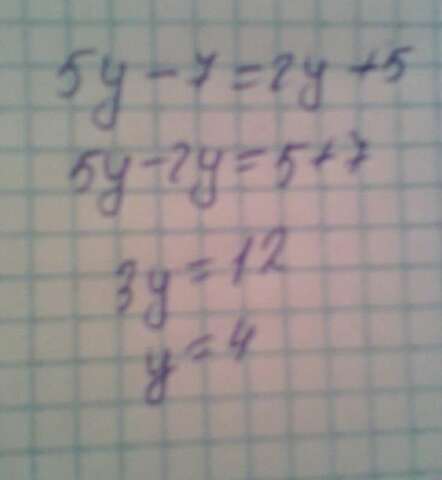 5y - 7 = 2y + 5
5y - 2y = 5 + 7
3y = 12
y = 4